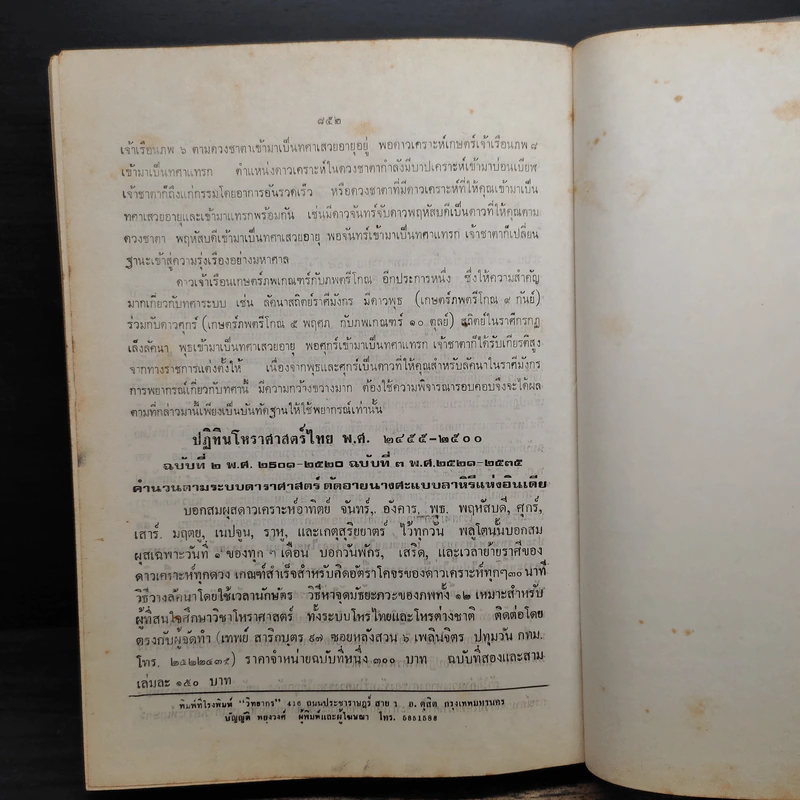 ๘๕๒
เจ้าเรือนภพ ๖ ตามดวงชาตาเข้ามาเป็นทศาเสวยอายุอยู่ พอดาวเคราะห์เกษตร์เจ้าเรือนภพ ๘
เข้ามาเป็นทศาแทรก ตำแหน่งดาวเคราะห์ในดวงชาตากำลังมีบาปเคราะห์เข้ามาบ่อนเบียฬ
เจ้าชาตาก็ถึงแก่กรรมโดยอาการอันรวดเร็ว หรือดวงชาตาที่มีดาวเคราะห์ที่ให้คุณเข้ามาเป็น
ทศาเสวยอายุและเข้ามาแทรกพร้อมกัน เช่นมีดาวจันทร์จับดาวพฤหัสบดีเป็นดาวที่ให้คุณตาม
ดวงชาตา พฤหัสบดีเข้ามาเป็นทศาเสวยอายุ พอจันทร์เข้ามาเป็นทศาแทรก เจ้าชาตาก็เปลี่ยน
ฐานะเข้าสู่ความรุ่งเรืองอย่างมหาศาล
ดาวเจ้าเรือนเกษตร์ภพเกณฑร์กับภพตรีโกณ อีกประการหนึ่ง ซึ่งให้ความสำคัญ
มากเกี่ยวกับทศาระบบ เช่น ลัคนาสถิตย์ราศีมังกร มีดาวพุธ (เกษตร์ภพตรีโกณ ๙ กันย์)
ร่วมกับดาวศุกร์ (เกษตร์ภพตรีโกณ ๕ พฤศภ กับภพเกณฑร์ ๑๐ ตุลย์) สถิตย์ในราศีกรกฏ
เล็งลัคนา พุธเข้ามาเป็นทศาเสวยอายุ พอศุกร์เข้ามาเป็นทศาแทรก เจ้าชาตาก็ได้รับเกียรติสูง
จากทางราชการแต่งตั้งให้ เนื่องจากพุธและศุกร์เป็นดาวที่ให้คุณสำหรับลัคนาในราศีมังกร
การพยากรณ์เกี่ยวกับทศานี้ มีความกว้างขวางมาก ต้องใช้ความพิจารณารอบคอบจึงจะได้ผล
ตามที่กล่าวมานี้เพียงเป็นบันทัดฐานให้ใช้พยากรณ์เท่านั้น
ปฏิทินโหราศาสตร์ไทย พ.ศ. ๒๔๕๕-๒๕๐๐
ฉบับที่ ๒ พ.ศ. ๒๕๐๑-๒๕๒๐ ฉบับที่ ๓ พ.ศ.๒๕๒๑-๒๕๓๕
คำนวนตามระบบดาราศาสตร์ ตัดอายนางศะแบบลาหิรีแห่งอินเดีย
บอกสมผุสดาวเคราะห์อาทิตย์ จันทร์, อังคาร, พุธ, พฤหัสบดี, ศุกร์,
เสาร์. มฤตยู, เนปจูน, ราหู, และเกตุสุริยยาตร์ ไว้ทุกวัน พลูโตนั้นบอกสม
ผุสเฉพาะวันที่ ๑ ของทุก ๆ เดือน บอกวันพักร, เสริด, และเวลาย้ายราศีของ
ดาวเคราะห์ทุกดวง เกณฑ์สำเร็จสำหรับคิดอัตราโคจรของดาวเคราะห์ทุกๆ๓๐ นาที
วิธีวางลัคนาโดยใช้เวลานักษัตร วิธีหาจุดมัธยะภวะของภพทั้ง ๑๒ เหมาะสำหรับ
ผู้ที่สนใจศึกษาวิชาโหราศาสตร์ ทั้งระบบโหรไทยและโหรต่างชาติ ติดต่อโดย
ตรงกับผู้จัดทำ (เทพย์ สาริกบุตร ๙๗ ซอยหลังสวน ๖ เพลินจิตร ปทุมวัน กทม.
โทร. ๒๕๒๒๔๓๙) ราคาจำหน่ายฉบับที่หนึ่ง ๓๐๐ บาท ฉบับที่สองและสาม
เล่มละ ๑๕๐ บาท
พิมพ์ที่โรงพิมพ์ "วิทยากร" 410 ถนนประชาราษฎร์ สาย ๑ อ. ดุสิต กรุงเทพมหานคร
บัญญัติ พยุงวงศ์ ผู้พิมพ์และผู้โฆษณา โทร. 5851588